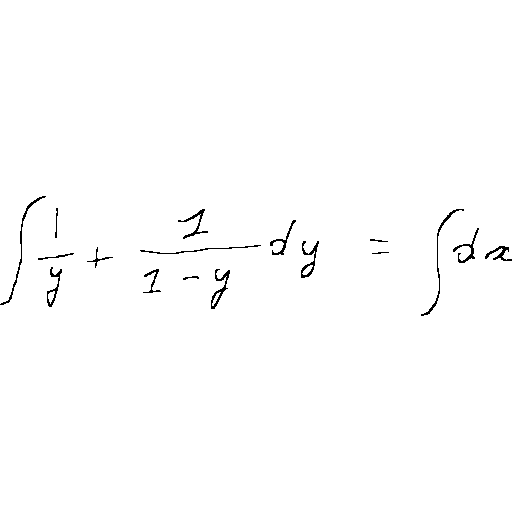 \int \frac{1}{y} + \frac{1}{1-y} dy = \int dx